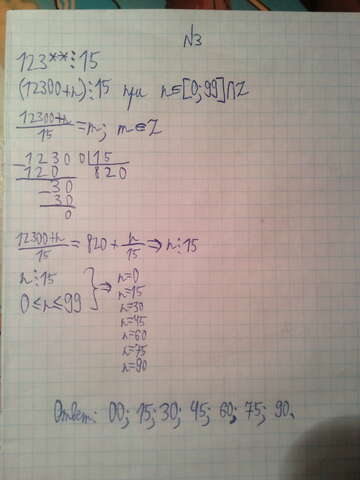 №3
123**⋮15
(12300+n)⋮15 при n∈[0;99]∩Z
(12300+n)/15 = m; m∈Z
12300|15
120 820
30
30
0
(12300+n)/15 = 820 + n/15 ⇒ n⋮15
n⋮15
0≤n≤99 } ⇒
n=0
n=15
n=30
n=45
n=60
n=75
n=90
Ответ: 00; 15; 30; 45; 60; 75; 90.